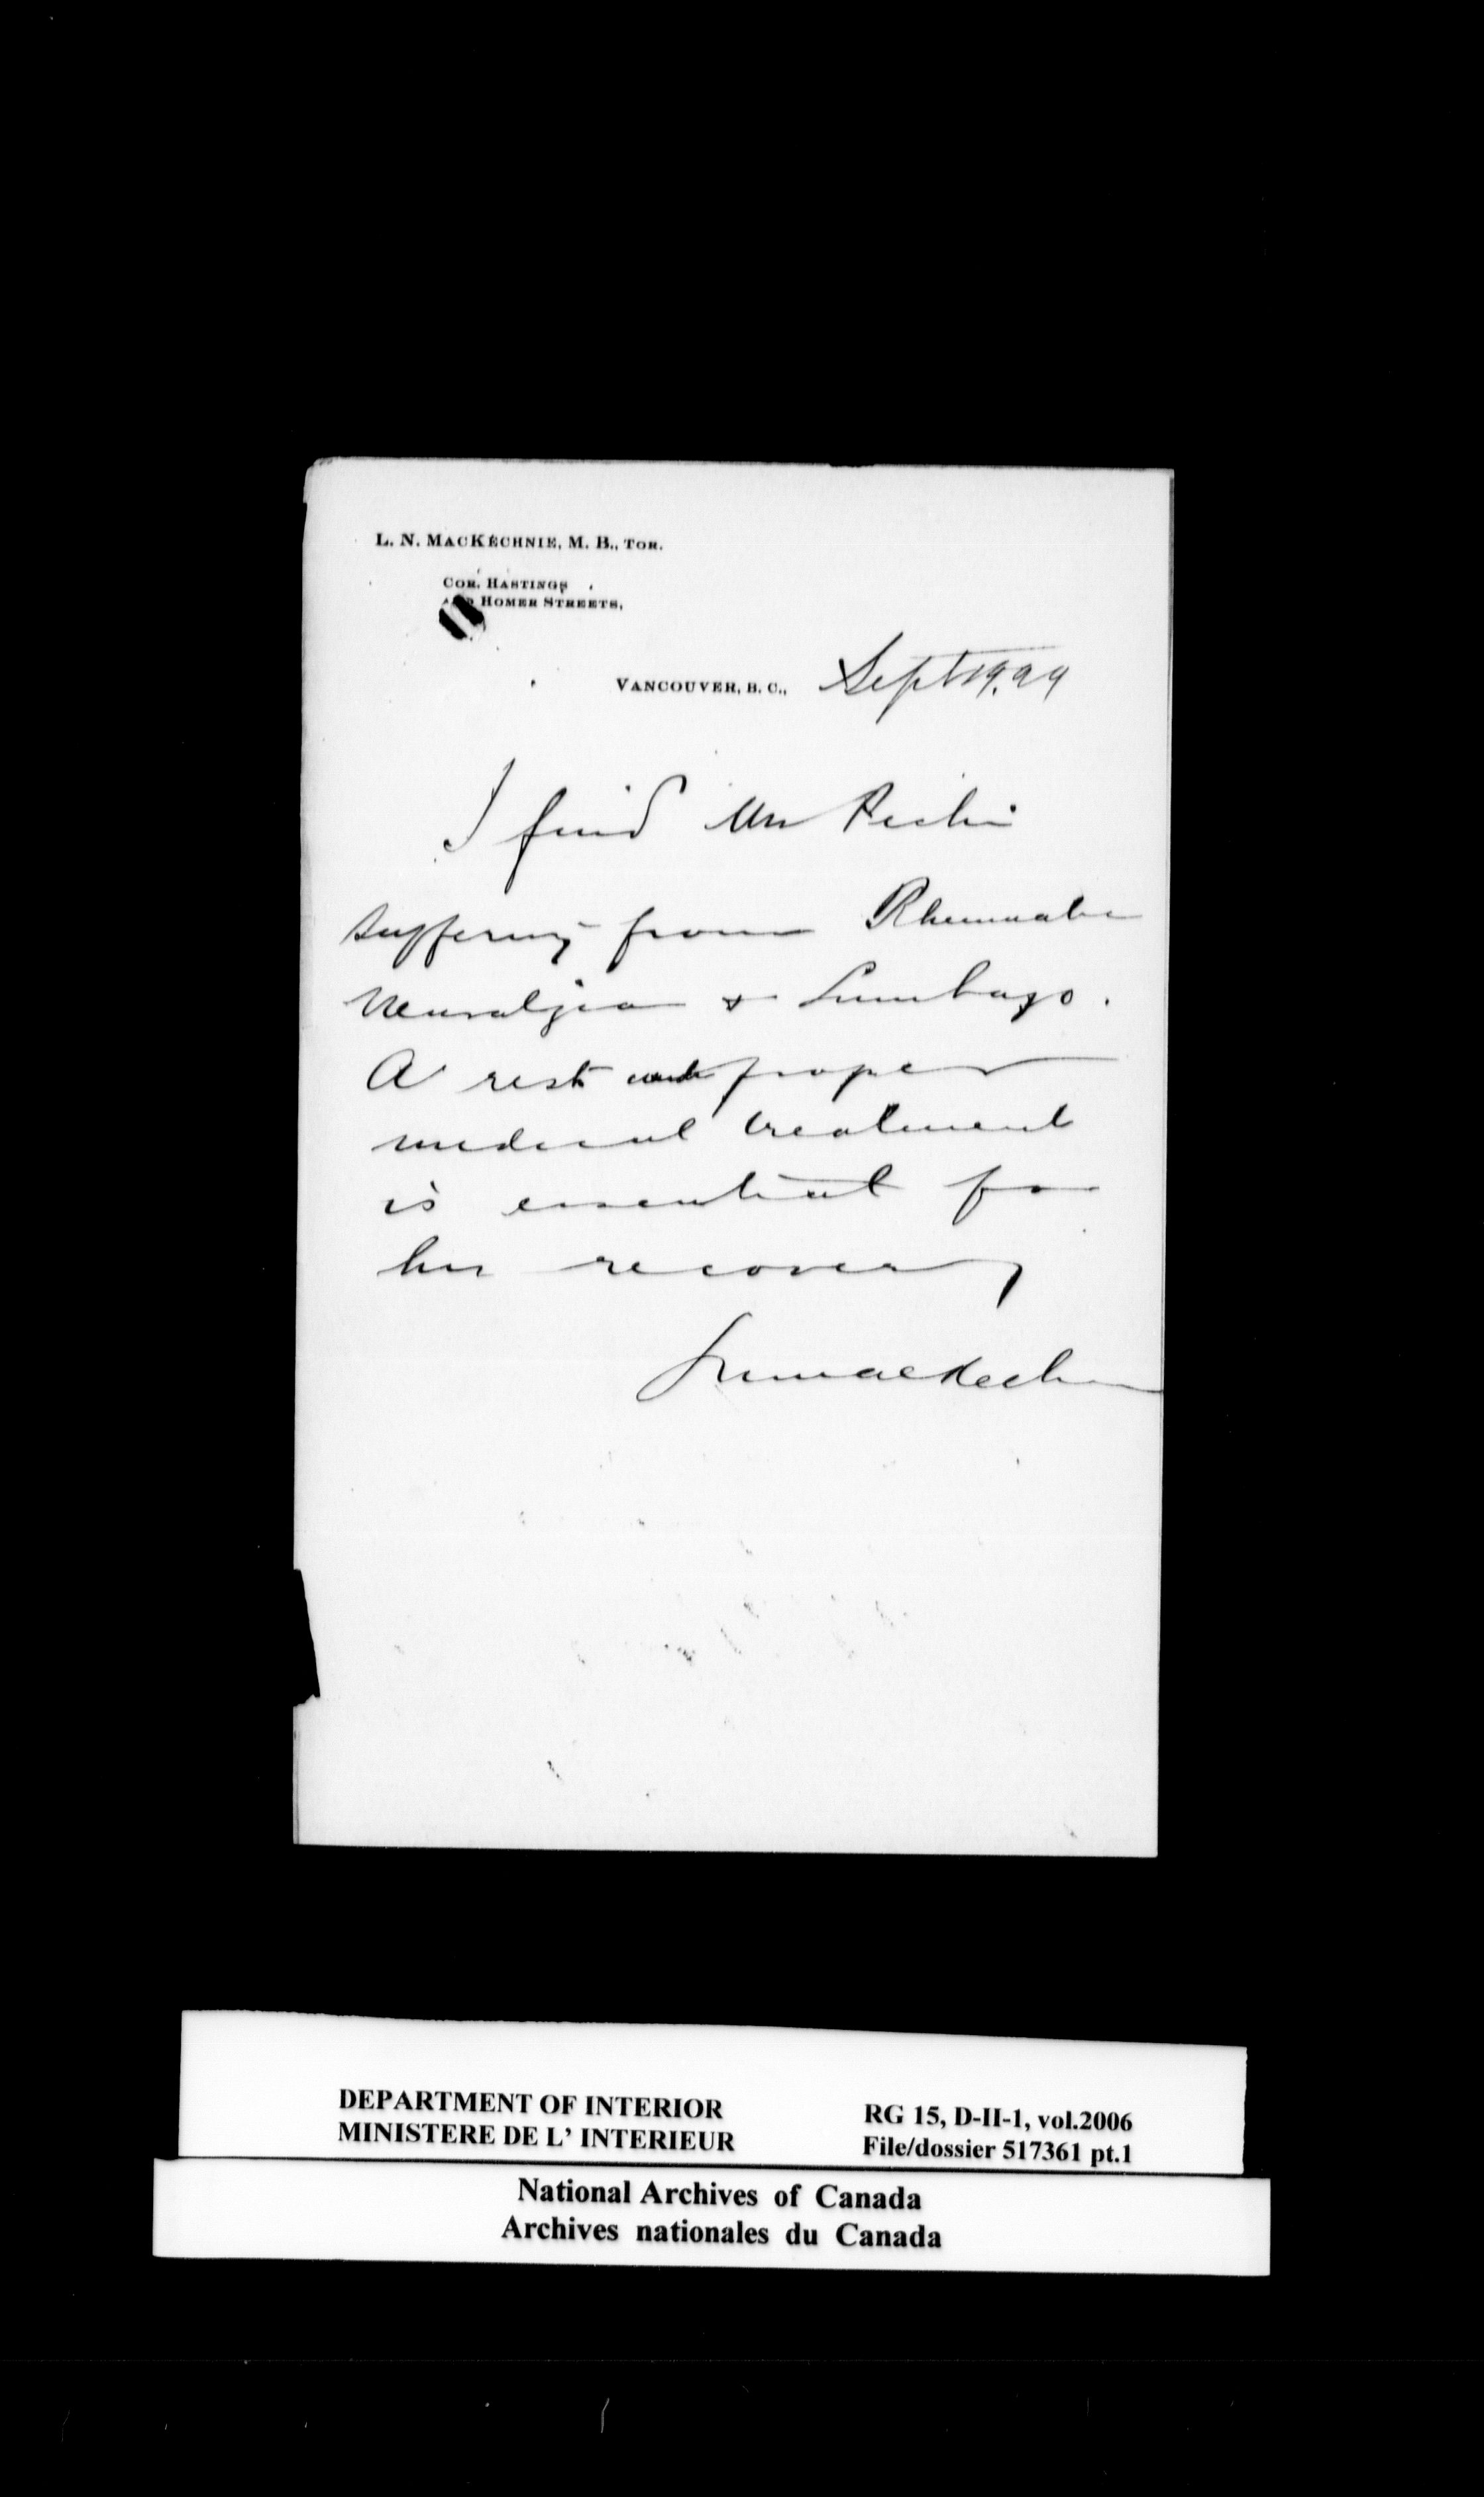 L. N. MacKechnie, M. B., Tor.
Cor. Hastings
and Homer Streets,
Vancouver, B. C., Sept 19. 99
I find Mr
suffering from Rheumatic
Neuralgia & Lumbago.
A rest and proper
medical treatment
is essential for
his recovery
LNMacKechnie
DEPARTMENT OF INTERIOR RG 15, D-II-1, vol.2006
MINISTERE DE L' INTERIEUR File/dossier 517361 pt.1
National Archives of Canada
Archives nationales du Canada